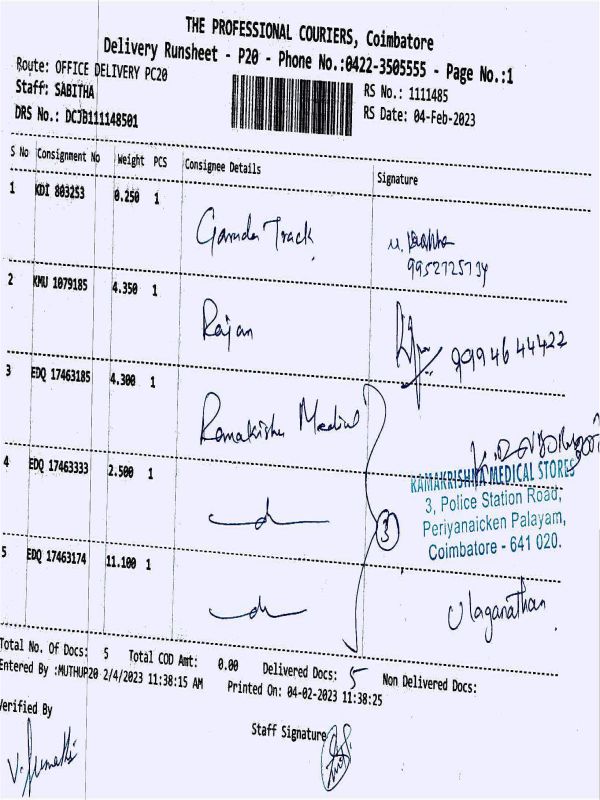 THE PROFESSIONAL COURIERS, Coimbatore
Delivery Runsheet - P20 - Phone No.:0422-3505555 - Page No.:1
Route: OFFICE DELIVERY PC20
RS No.: 1111485
Staff: SABITHA
RS Date: 04-Feb-2023
DRS No.: DCJB111148501
S No Consignment No Weight PCS Consignee Details Signature
1 KDI 803253 0.250 1
Garuda Track
9952725734
2 KMU 1079185 4.350 1
Rajan
9994644422
3 EDQ 17463185 4.300 1
Ramakishn Medical
4 EDQ 17463333 2.500 1
RAMAKRISHNA MEDICAL STORES
3, Police Station Road,
Periyanaicken Palayam,
Coimbatore - 641 020.
3
5 EDQ 17463174 11.100 1
Ulaganathan
Total No. Of Docs: 5 Total COD Amt: 0.00 Delivered Docs: 5 Non Delivered Docs:
Entered By :MUTHUP20 2/4/2023 11:38:15 AM Printed On: 04-02-2023 11:38:25
Verified By
Staff Signature